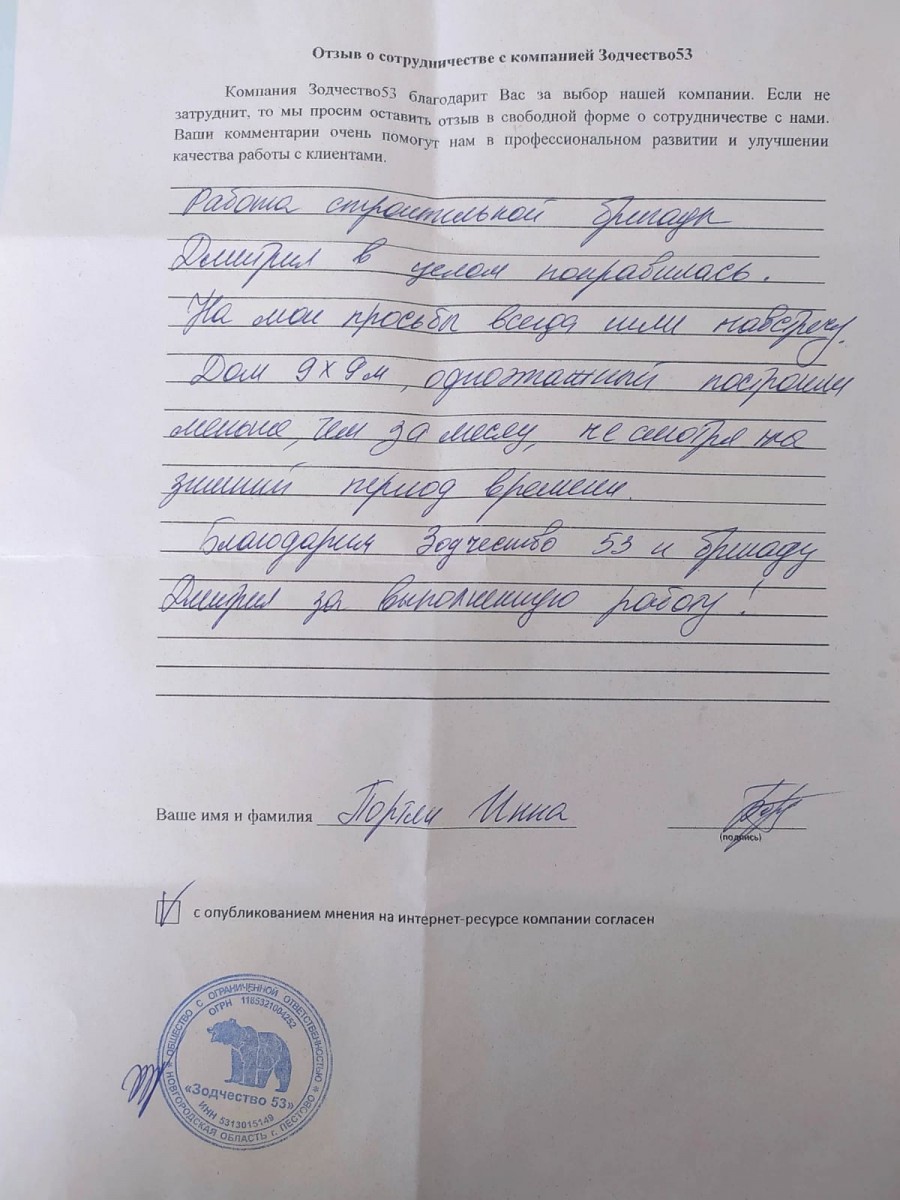 Отзыв о сотрудничестве с компанией Зодчество53
Компания Зодчество53 благодарит Вас за выбор нашей компании. Если не
затруднит, то мы просим оставить отзыв в свободной форме о сотрудничестве с нами.
Ваши комментарии очень помогут нам в профессиональном развитии и улучшении
качества работы с клиентами.
Работа строительной бригады
Дмитрия в целом понравилась.
На мои просьбы всегда шли навстречу.
Дом 9х9м, одноэтажный построили
меньше, чем за месяц, не смотря на
зимний период времени.
Благодарим Зодчество 53 и бригаду
Дмитрия за выполненную работу!
Ваше имя и фамилия Портли Инна
(подпись)
с опубликованием мнения на интернет-ресурсе компании согласен
ОБЩЕСТВО С ОГРАНИЧЕННОЙ ОТВЕТСТВЕННОСТЬЮ
ОГРН 1185321004252
«Зодчество 53»
ИНН 5313015149
НОВГОРОДСКАЯ ОБЛАСТЬ г. ПЕСТОВО